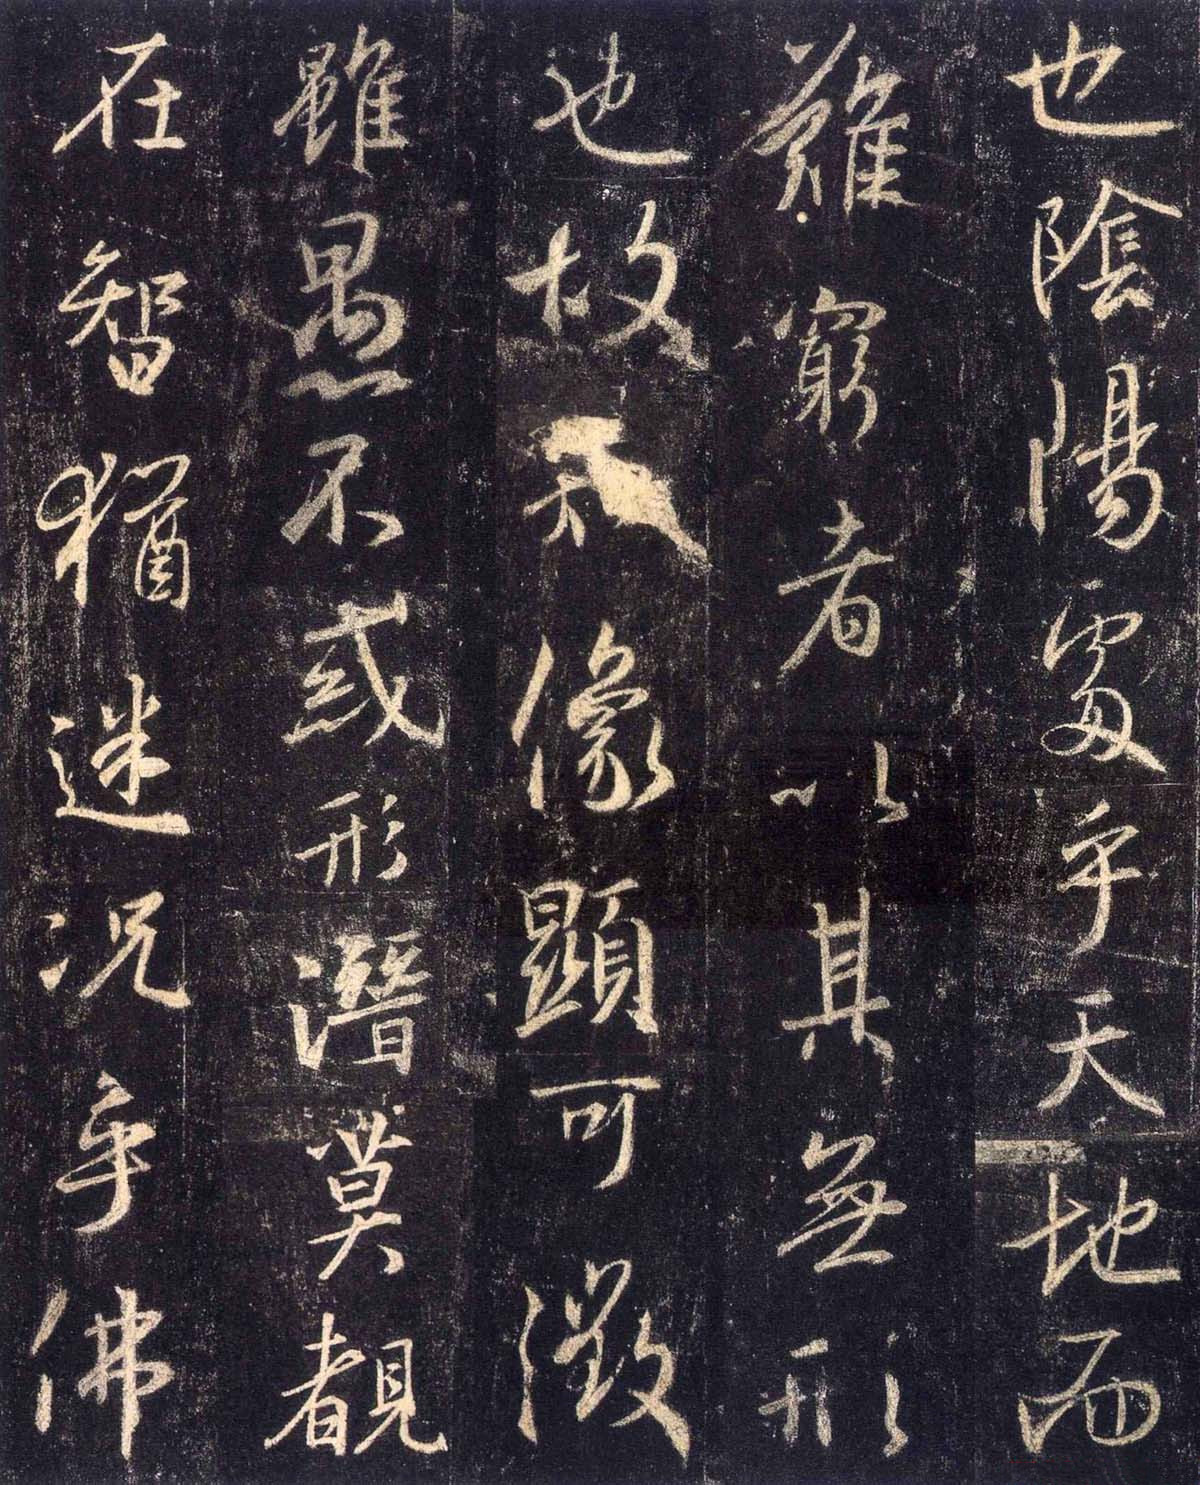 也陰陽處乎天地而
難窮者以其無形
也故知像顯可徵
雖愚不惑形潛莫覩
在智猶迷況乎佛